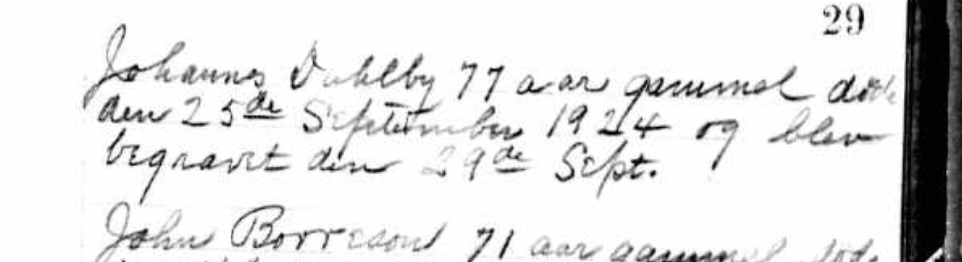 29
Johannes Dahlby 77 aar gammel døde
den 25de September 1924 og blev
begravet den 29de Sept.
John Borreson 71 aar gammel døde